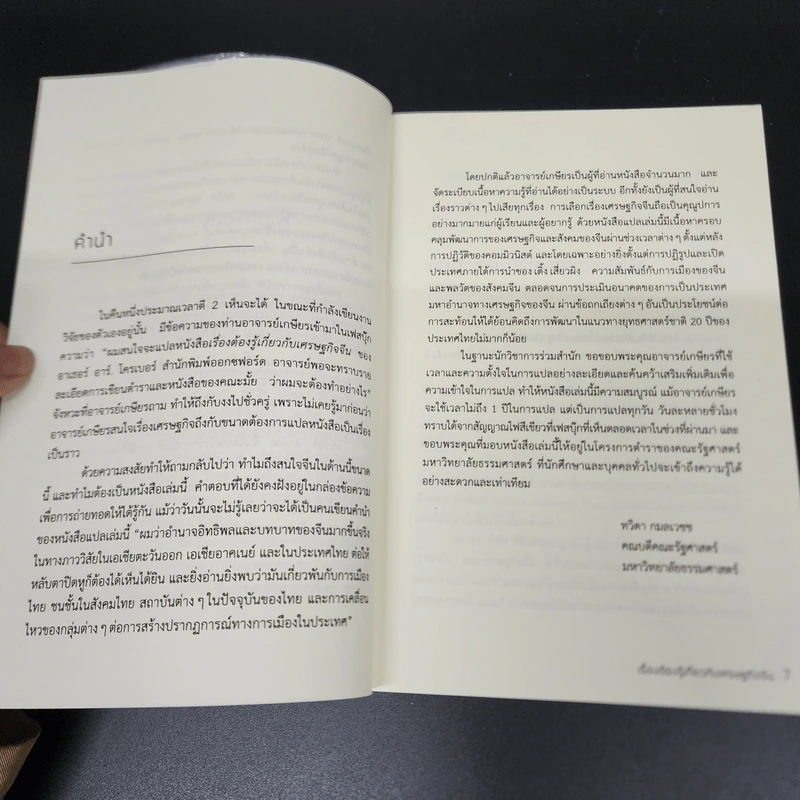 คำนำ
ในคืนหนึ่งประมาณเวลาตี 2 เห็นจะได้ ในขณะที่กำลังเขียนงาน
วิจัยของตัวเองอยู่นั้น มีข้อความของท่านอาจารย์เกษียรเข้ามาในเฟสบุ๊ก
ความว่า “ผมสนใจจะแปลหนังสือเรื่องต้องรู้เกี่ยวกับเศรษฐกิจจีน ของ
อาเธอร์ อาร์. โครเบอร์ สำนักพิมพ์ออกซฟอร์ด อาจารย์พอจะทราบราย
ละเอียดการเขียนตำราและหนังสือของคณะมั้ย ว่าผมจะต้องทำอย่างไร”
จังหวะที่อาจารย์เกษียรถาม ทำให้ถึงกับงงไปชั่วครู่ เพราะไม่เคยรู้มาก่อนว่า
อาจารย์เกษียรสนใจเรื่องเศรษฐกิจถึงกับขนาดต้องการแปลหนังสือเป็นเรื่อง
เป็นราว
ด้วยความสงสัยทำให้ถามกลับไปว่า ทำไมถึงสนใจจีนในด้านนี้ขนาด
นี้ และทำไมต้องเป็นหนังสือเล่มนี้ คำตอบที่ได้ยังคงฝังอยู่ในกล่องข้อความ
เพื่อการถ่ายทอดให้ได้รู้กัน แม้ว่าวันนั้นจะไม่รู้เลยว่าจะได้เป็นคนเขียนคำนำ
ของหนังสือแปลเล่มนี้ “ผมว่าอำนาจอิทธิพลและบทบาทของจีนมากขึ้นจริง
ในทางภาววิสัยในเอเชียตะวันออก เอเชียอาคเนย์ และในประเทศไทย ต่อให้
หลับตาปิดหูก็ต้องได้เห็นได้ยิน และยิ่งอ่านยิ่งพบว่ามันเกี่ยวพันกับการเมือง
ไทย ชนชั้นในสังคมไทย สถาบันต่าง ๆ ในปัจจุบันของไทย และการเคลื่อน
ไหวของกลุ่มต่าง ๆ ต่อการสร้างปรากฏการณ์ทางการเมืองในประเทศ”
โดยปกติแล้วอาจารย์เกษียรเป็นผู้ที่อ่านหนังสือจำนวนมาก และ
จัดระเบียบเนื้อหาความรู้ที่อ่านได้อย่างเป็นระบบ อีกทั้งยังเป็นผู้ที่สนใจอ่าน
เรื่องราวต่าง ๆ ไปเสียทุกเรื่อง การเลือกเรื่องเศรษฐกิจจีนถือเป็นคุณูปการ
อย่างมากมายแก่ผู้เรียนและผู้อยากรู้ ด้วยหนังสือแปลเล่มนี้มีเนื้อหาครอบ
คลุมพัฒนาการของเศรษฐกิจและสังคมของจีนผ่านช่วงเวลาต่าง ๆ ตั้งแต่หลัง
การปฏิวัติของคอมมิวนิสต์ และโดยเฉพาะอย่างยิ่งตั้งแต่การปฏิรูปและเปิด
ประเทศภายใต้การนำของ เติ้ง เสี่ยวผิง ความสัมพันธ์กับการเมืองของจีน
และพลวัตของสังคมจีน ตลอดจนการประเมินอนาคตของการเป็นประเทศ
มหาอำนาจทางเศรษฐกิจของจีน ผ่านข้อถกเถียงต่าง ๆ อันเป็นประโยชน์ต่อ
การสะท้อนให้ได้ย้อนคิดถึงการพัฒนาในแนวทางยุทธศาสตร์ชาติ 20 ปีของ
ประเทศไทยไม่มากก็น้อย
ในฐานะนักวิชาการร่วมสำนัก ขอขอบพระคุณอาจารย์เกษียรที่ใช้
เวลาและความตั้งใจในการแปลอย่างละเอียดและค้นคว้าเสริมเพิ่มเติมเพื่อ
ความเข้าใจในการแปล ทำให้หนังสือเล่มนี้มีความสมบูรณ์ แม้อาจารย์เกษียร
จะใช้เวลาไม่ถึง 1 ปีในการแปล แต่เป็นการแปลทุกวัน วันละหลายชั่วโมง
ทราบได้จากสัญญาณไฟสีเขียวที่เฟสบุ๊กที่เห็นตลอดเวลาในช่วงที่ผ่านมา และ
ขอบพระคุณที่มอบหนังสือเล่มนี้ให้อยู่ในโครงการตำราของคณะรัฐศาสตร์
มหาวิทยาลัยธรรมศาสตร์ ที่นักศึกษาและบุคคลทั่วไปจะเข้าถึงความรู้ได้
อย่างสะดวกและเท่าเทียม
ทวิดา กมลเวชช
คณบดีคณะรัฐศาสตร์
มหาวิทยาลัยธรรมศาสตร์
เรื่องต้องรู้เกี่ยวกับเศรษฐกิจจีน 7